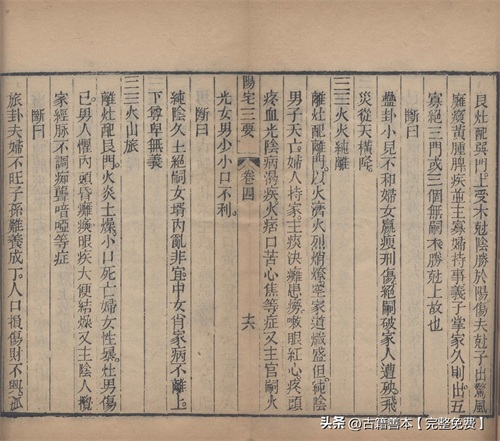 艮灶配巽門上受木尅陰勝於陽傷夫尅子出驚風
癱瘓黃腫脾疾並主寡婦持事義子掌家久則出五
寡絕三門或三個無嗣木勝尅土故也
斷曰
蠱卦小兒不和婦女羸瘦刑傷絕嗣破家人遭殃飛
災從天橫降
火火純離
離灶配離門以火濟火烈焰燎空家道熾盛但純陰
男子夭亡婦人持家主痰癱患癆嗽眼紅心疼頭
疼血光陰病湯疾火病口苦心焦等症又主官嗣火
陽宅三要 卷四 十六
光女男少小口不利
斷曰
純陰久主絕嗣女壻內亂非宜中女肖家病不離上
下尊卑無義
火山旅
離灶配艮門火炎土燥小口死亡婦女性暴灶男傷
己男人懼內頭昏癱瘓眼疾大便結燥又主陰人攪
家經脈不調痴聾喑啞等症
斷曰
旅卦夫婦不旺子孫難養成丁人口損傷財不興孤
头条 @古籍善本【完整免费】